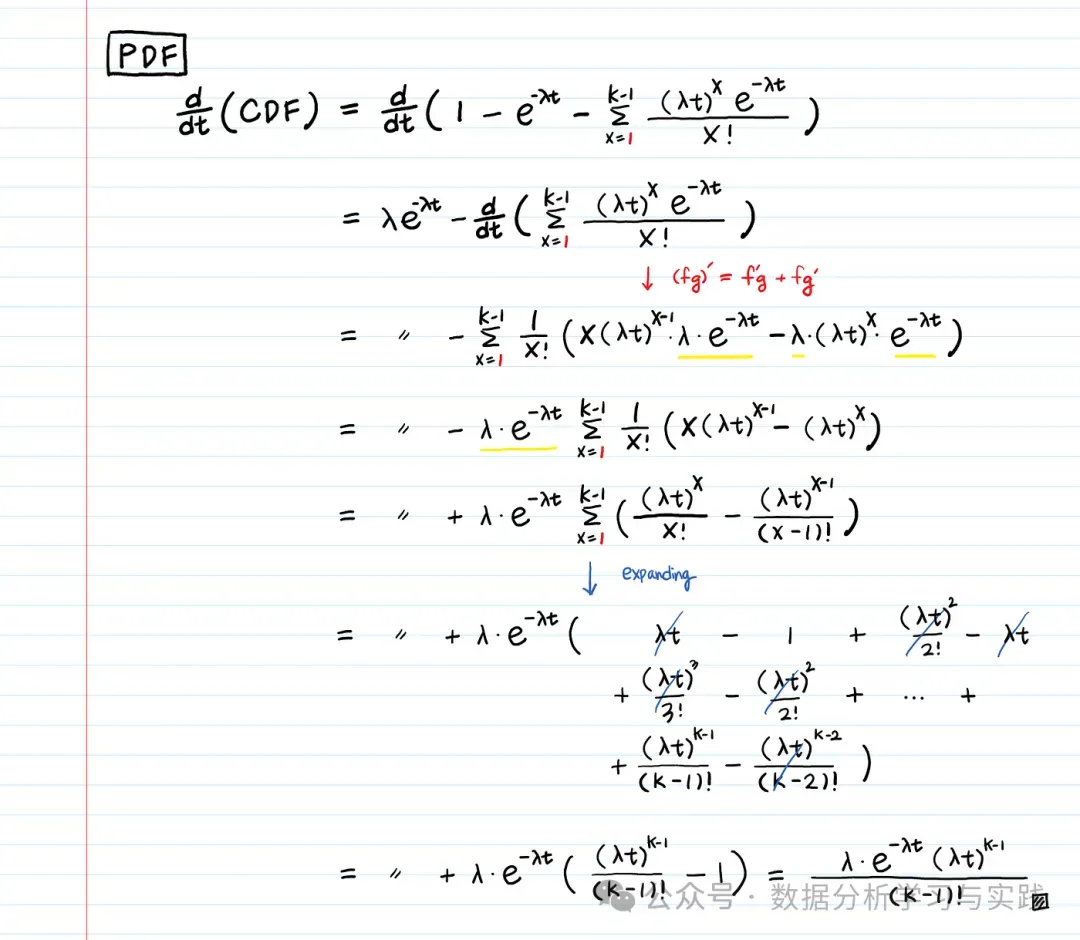 PDF
d/dt (CDF) = d/dt ( 1 - e^{-λt} - Σ_{x=1}^{k-1} (λt)^x e^{-λt} / x! )
= λe^{-λt} - d/dt ( Σ_{x=1}^{k-1} (λt)^x e^{-λt} / x! )
↓ (fg)' = f'g + fg'
= 〃 - Σ_{x=1}^{k-1} 1/x! ( x(λt)^{x-1}·λ·e^{-λt} - λ·(λt)^x·e^{-λt} )
= 〃 - λ·e^{-λt} Σ_{x=1}^{k-1} 1/x! ( x(λt)^{x-1} - (λt)^x )
= 〃 + λ·e^{-λt} Σ_{x=1}^{k-1} ( (λt)^x / x! - (λt)^{x-1} / (x-1)! )
↓ expanding
= 〃 + λ·e^{-λt} ( λt - 1 + (λt)^2 / 2! - λt
+ (λt)^3 / 3! - (λt)^2 / 2! + ... +
+ (λt)^{k-1} / (k-1)! - (λt)^{k-2} / (k-2)! )
= 〃 + λ·e^{-λt} ( (λt)^{k-1} / (k-1)! - 1 ) = λ·e^{-λt} (λt)^{k-1} / (k-1)!
公众号 · 数据分析学习与实践